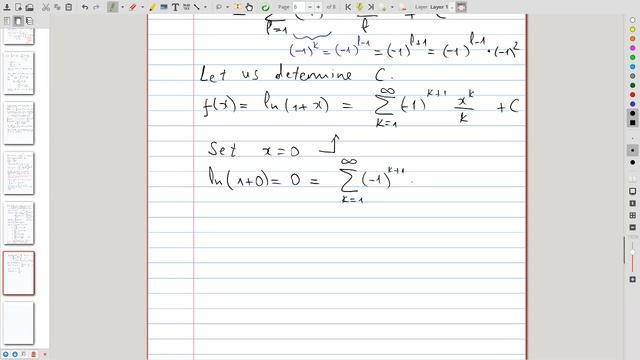 Page 6 of 8 Layer Layer 1
l=1 l + C
(-1)^k = (-1)^{l-1} = (-1)^{l+1} = (-1)^{l-1} · (-1)^2
Let us determine C.
f(x) = ln(1+x) = ∑_{k=1}^{∞} (-1)^{k+1} x^k/k + C
Set x=0
ln(1+0) = 0 = ∑_{k=1}^{∞} (-1)^{k+1} ·